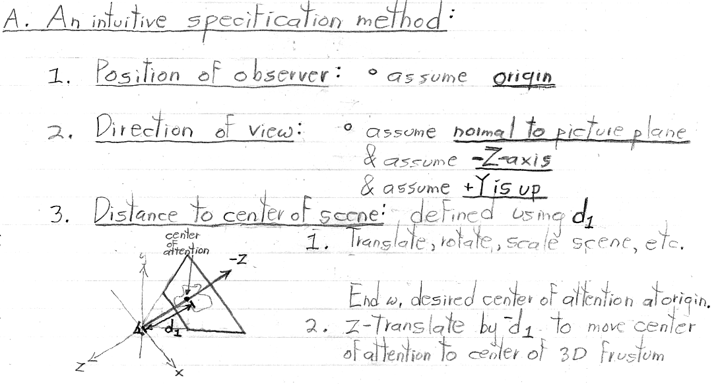 A. An intuitive specification method:
1. Position of observer: ° assume origin
2. Direction of view: ° assume normal to picture plane
& assume -Z-axis
& assume +Y is up
3. Distance to center of scene: defined using d1
1. Translate, rotate, scale scene, etc.
center
of
attention
-Z
y
End w, desired center of attention at origin.
d1
2. Z-Translate by -d1 to move center
of attention to center of 3D frustum
Z
x